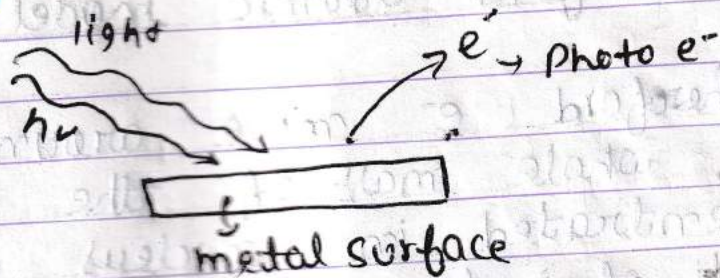 light
e⁻ → photo e⁻
hν
metal surface